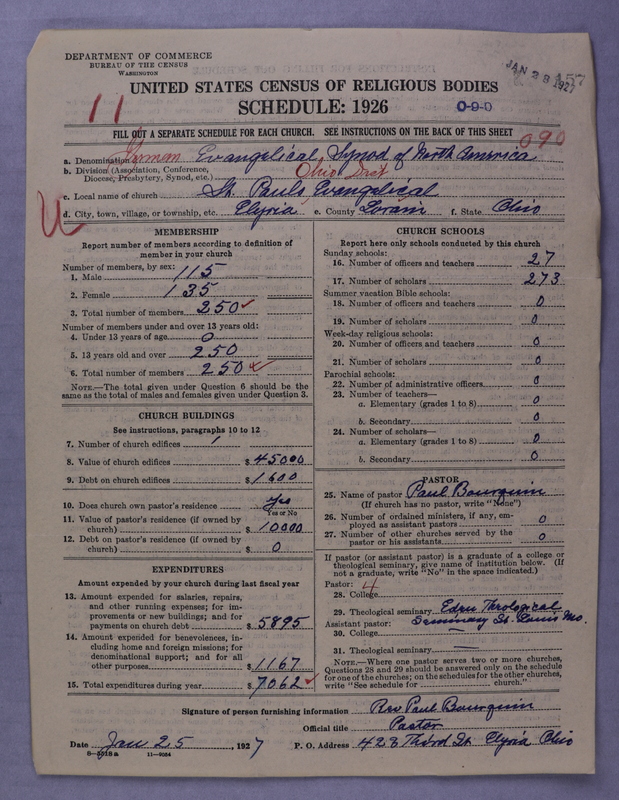 DEPARTMENT OF COMMERCE
BUREAU OF THE CENSUS
WASHINGTON
JAN 28 1927
157
UNITED STATES CENSUS OF RELIGIOUS BODIES
SCHEDULE: 1926
11
0-9-0
FILL OUT A SEPARATE SCHEDULE FOR EACH CHURCH. SEE INSTRUCTIONS ON THE BACK OF THIS SHEET
090
a. Denomination German Evangelical Synod of North America
b. Division (Association, Conference, Diocese, Presbytery, Synod, etc.) Ohio Dist
c. Local name of church St. Pauls Evangelical
d. City, town, village, or township, etc. Elyria e. County Lorain f. State Ohio
MEMBERSHIP
Report number of members according to definition of
member in your church
Number of members, by sex:
1. Male 115
2. Female 135
3. Total number of members 250
Number of members under and over 13 years old:
4. Under 13 years of age 0
5. 13 years old and over 250
6. Total number of members 250
NOTE.—The total given under Question 6 should be the
same as the total of males and females given under Question 3.
CHURCH BUILDINGS
See instructions, paragraphs 10 to 12
7. Number of church edifices 1
8. Value of church edifices $ 45000
9. Debt on church edifices $ 1600
10. Does church own pastor's residence Yes
Yes or No
11. Value of pastor's residence (if owned by
church) $ 10000
12. Debt on pastor's residence (if owned by
church) $ 0
EXPENDITURES
Amount expended by your church during last fiscal year
13. Amount expended for salaries, repairs,
and other running expenses; for im-
provements or new buildings; and for
payments on church debt $ 5895
14. Amount expended for benevolences, in-
cluding home and foreign missions; for
denominational support; and for all
other purposes $ 1167
15. Total expenditures during year $ 7062
CHURCH SCHOOLS
Report here only schools conducted by this church
Sunday schools:
16. Number of officers and teachers 27
17. Number of scholars 273
Summer vacation Bible schools:
18. Number of officers and teachers 0
19. Number of scholars 0
Week-day religious schools:
20. Number of officers and teachers 0
21. Number of scholars 0
Parochial schools:
22. Number of administrative officers 0
23. Number of teachers—
a. Elementary (grades 1 to 8) 0
b. Secondary 0
24. Number of scholars—
a. Elementary (grades 1 to 8) 0
b. Secondary 0
PASTOR
25. Name of pastor Paul Bourquin
(If church has no pastor, write "None")
26. Number of ordained ministers, if any, em-
ployed as assistant pastors 0
27. Number of other churches served by the
pastor or his assistants 0
If pastor (or assistant pastor) is a graduate of a college or
theological seminary, give name of institution below. (If
not a graduate, write "No" in the space indicated.)
Pastor: 4
28. College
29. Theological seminary Eden Theological
Assistant pastor: Seminary St. Louis Mo.
30. College —
31. Theological seminary —
NOTE.—Where one pastor serves two or more churches,
Questions 28 and 29 should be answered only on the schedule
for one of the churches; on the schedules for the other churches,
write "See schedule for church."
Signature of person furnishing information Rev Paul Bourquin
Official title Pastor
Date Jan 25, 1927 P. O. Address 428 Third St Elyria Ohio
8—3518a 11—9064